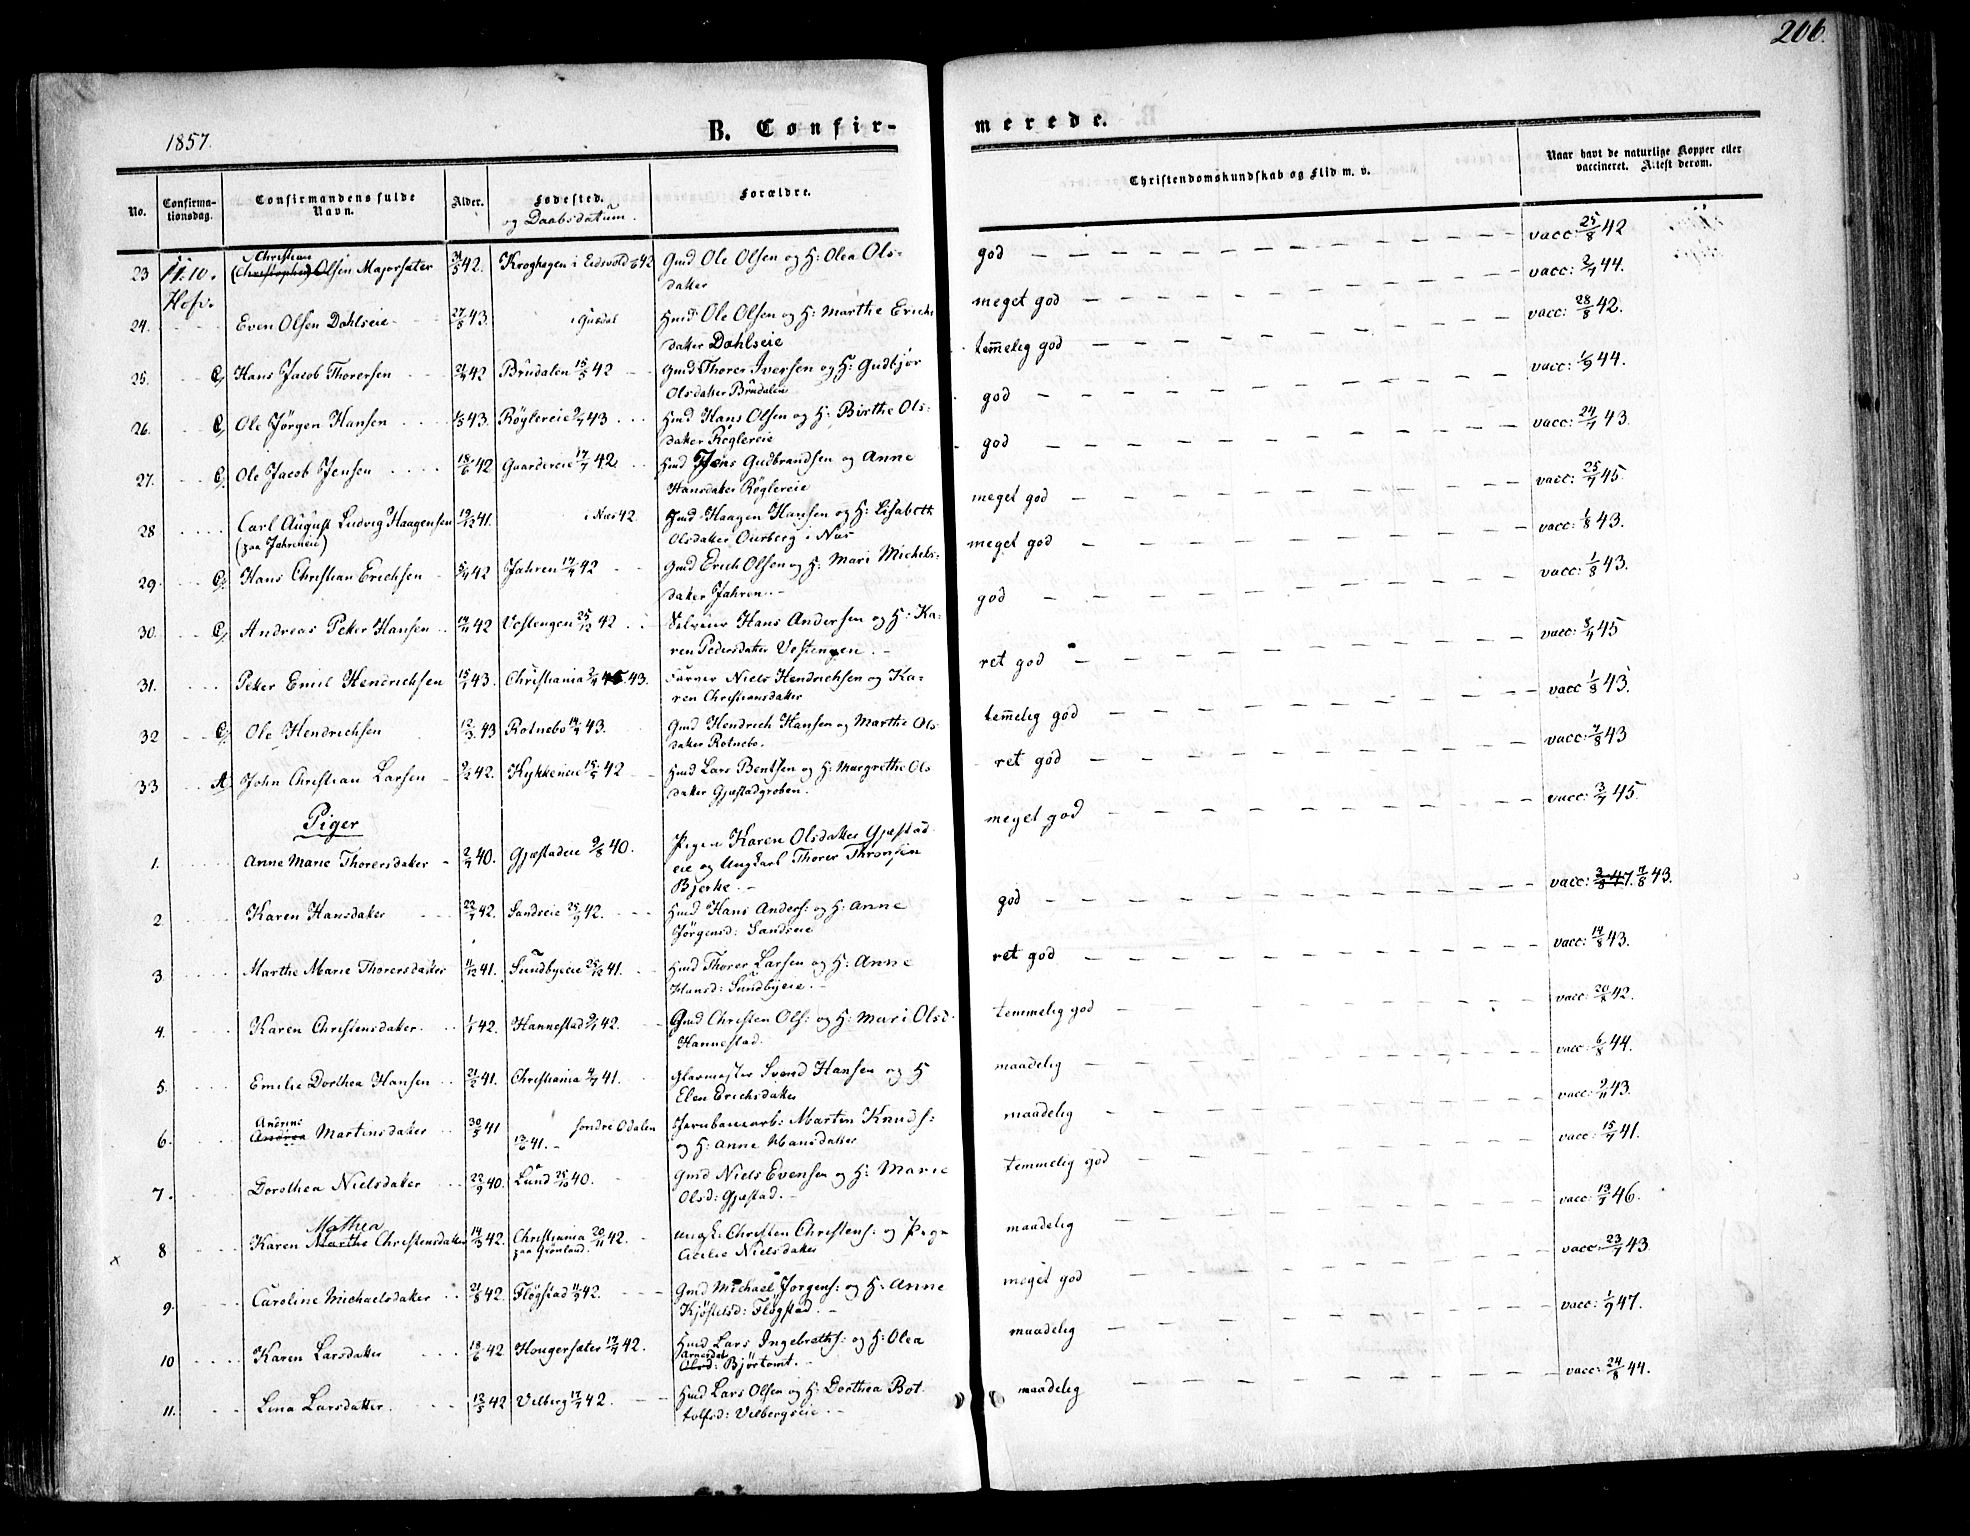 206.
1857.
B. Confir-
merede.
No.
Confirma-
tionsdag.
Confirmandens fulde
Navn.
Alder.
Fødested.
og Daabsdatum.
Forældre.
Christendomskundskab og Flid m. v.
Naar havt de naturlige Kopper eller
vaccineret. Attest derom.
Christian
23 11.10. (Christopher) Olsen Majorsæter 42. Kroghagen i Eidsvold 42 Gmd Ole Olsen og H: Olea Ols-
daker
god vacc: 25/8 42
Hofv.
24. Even Olsen Dahlseie 27/8 43. i Gusdal Hmd Ole Olsen og H: Marthe Erichs
daker Dahlseie
meget god vacc: 2/7 44.
25. C, Hans Jacob Thorersen 42 Brudalen 15/5 42 Gmd Thorer Iversen og H: Gudbjør
Olsdaker Brudalen
temmelig god vacc: 28/8 42.
26. C, Ole Jørgen Hansen 43. Røglereie 2/7 43 Hmd Hans Olsen og H: Birthe Ols:
daker Røglereie
god vacc: 1/9 44.
27. C, Ole Jacob Jensen 18/6 42 Gaardereie 17/7 42 Hmd Jens Gudbrandsen og Anne
Hansdaker Røglereie
god vacc: 24/7 43.
28 Carl August Ludvig Haagensen 19/12 41. i Næs 42. Gmd Haagen Hansen og H: Lisabeth
(paa Jahreneie) Olsdaker Ourberg i Næs
meget god vacc: 25/7 45.
29. C, Hans Christian Erichsen 5/4 42 Jahren 17/7 42 Gmd Erich Olsen og H: Mari Michels-
daker Jahren.
meget god vacc: 1/8 43.
30. C, Andreas Peter Hansen 19/11 42 Vestengen 25/12 42 Selveier Hans Andersen og H: Ka-
ren Pedersdatter Vestengen.
god vacc: 1/8 43.
31. Peter Emil Hendrichsen 15/1 43. Christiania 43. Farver Niels Hendrichsen og Ka-
ren Christiansdatter
ret god vacc: 8/7 45
32 C, Ole Hendrichsen 12/3 43 Rotnebo 14/4 43. Gmd Hendrich Hansen og Marthe Ols
daker Rotnebo.
temmelig god vacc 1/8 43.
33 A, John Christian Larsen 9/2 42. Kykkeneie 15/5 42 Hmd Lars Bentsen og H: Margrethe Ols
daker Gjæstadgroben.
ret god vacc: 7/8 43
Piger
1. Anne Marie Thorersdaker 2/7 40. Gjæstadeie 9/8 40. Pigen Karen Olsdatter Gjæstad
eie og Ungkarl Thorer Thronsen
Bjerke.
meget god vacc: 3/7 45.
2. Karen Hansdaker 22/7 42. Sandseie 25/9 42. Hmd Hans Anders: og H: Anne
Jørgensd: Sandseie
god vacc: 3/8 47. 7/8 43.
3. Marthe Marie Thorersdatter 11/12 41. Sundbyeie 25/12 41. Hmd Thorer Larsen og H: Anne
Hansd: Sundbyeie.
ret god vacc: 14/8 43.
4. Karen Christensdaker. 1/1 42. Hannestad 42. Gmd Christen Ols: og H: Mari Olsd.
Hannestad.
temmelig god vacc: 20/8 42.
5. Emilie Dorthea Hansen 21/2 41. Christiania 4/7 41. Glarmester Svend Hansen og H
Elen Erichsdatter
maadelig vacc: 6/8 44.
Andrine
6. Andrea Martinsdaker 30/5 41 søndre Odalen Jernbanearb: Marten Knuds:
13/6 41. og H: Anne Hansdatter
maadelig vacc: 9/11 43.
7. Dorothea Nielsdaker 22/9 40. Lund 25/10 40. Gmd Niels Evensen og H: Marie
Olsd: Gjæstad.
temmelig god vacc: 15/7 41.
Mathea
x 8 Karen Marthe Christensdaker 14/3 42. Christiania 20/11 42. Ungk: Christen Christens: og Pige
paa Grønland. Acelie Nielsdaker
maadelig vacc: 13/7 46.
9. Caroline Michaelsdaker 21/8 42. Fløgstad 11/9 42. Gmd Michael Jørgens: og H: Anne
Kjøstelsd: Fløgstad.
meget god vacc: 23/7 43.
10 Karen Larsdaker 18/6 42 Hougersæter 17/7 42. Hmd Lars Ingebreths: og H: Olea
Arnesdat
Olsd: Bjørtomt.
maadelig vacc: 1/9 47.
11. Lina Larsdatter. 13/5 42 Vilberg 17/7 42. Hmd Lars Olsen og H: Dorthea Bot
tolfsd: Vilbergseie.
maadelig vacc: 24/8 44.